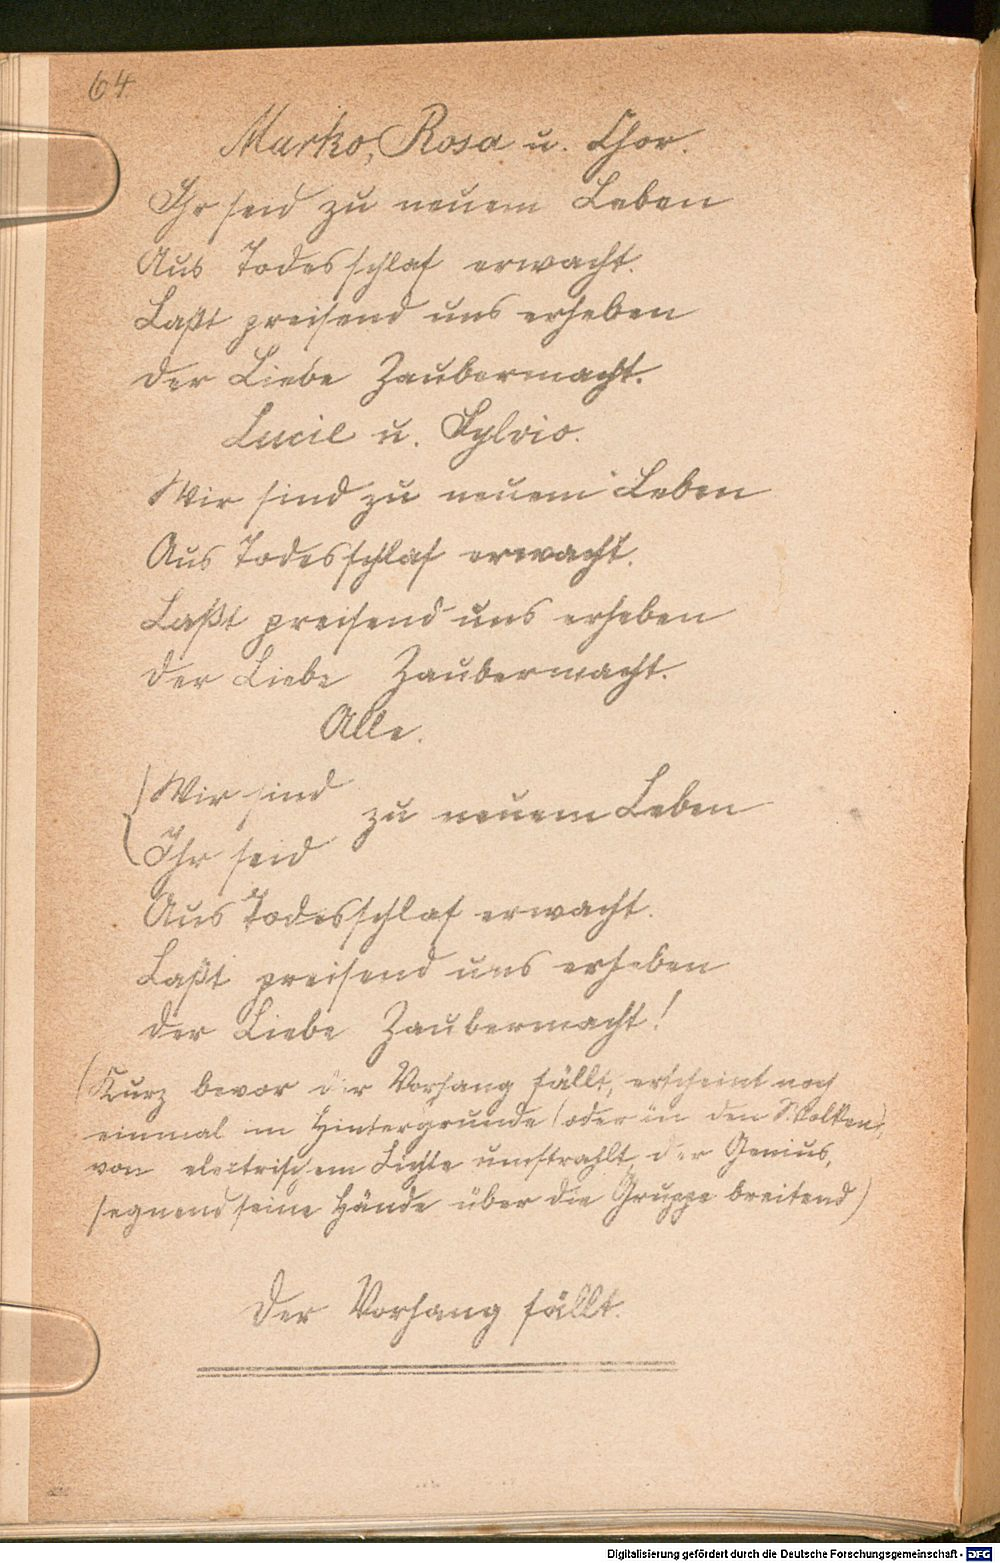 64.
Marko, Rosa u. Chor.
Ihr seid zu neuem Leben
Aus Todesschlaf erwacht.
Laßt preisend uns erheben
Der Liebe Zaubermacht.
Lucil u. Sylvio.
Wir sind zu neuem Leben
Aus Todesschlaf erwacht.
Laßt preisend uns erheben
Der Liebe Zaubermacht.
Alle.
Wir sind
zu neuem Leben
Ihr seid
Aus Todesschlaf erwacht.
Laßt preisend uns erheben
Der Liebe Zaubermacht!
(Kurz bevor der Vorhang fällt, erscheint noch
einmal im Hintergrunde (oder in den Wolken),
von electrischem Lichte umstrahlt, der Genius,
segnend seine Hände über die Gruppe breitend)
Der Vorhang fällt.
Digitalisierung gefördert durch die Deutsche Forschungsgemeinschaft - DFG